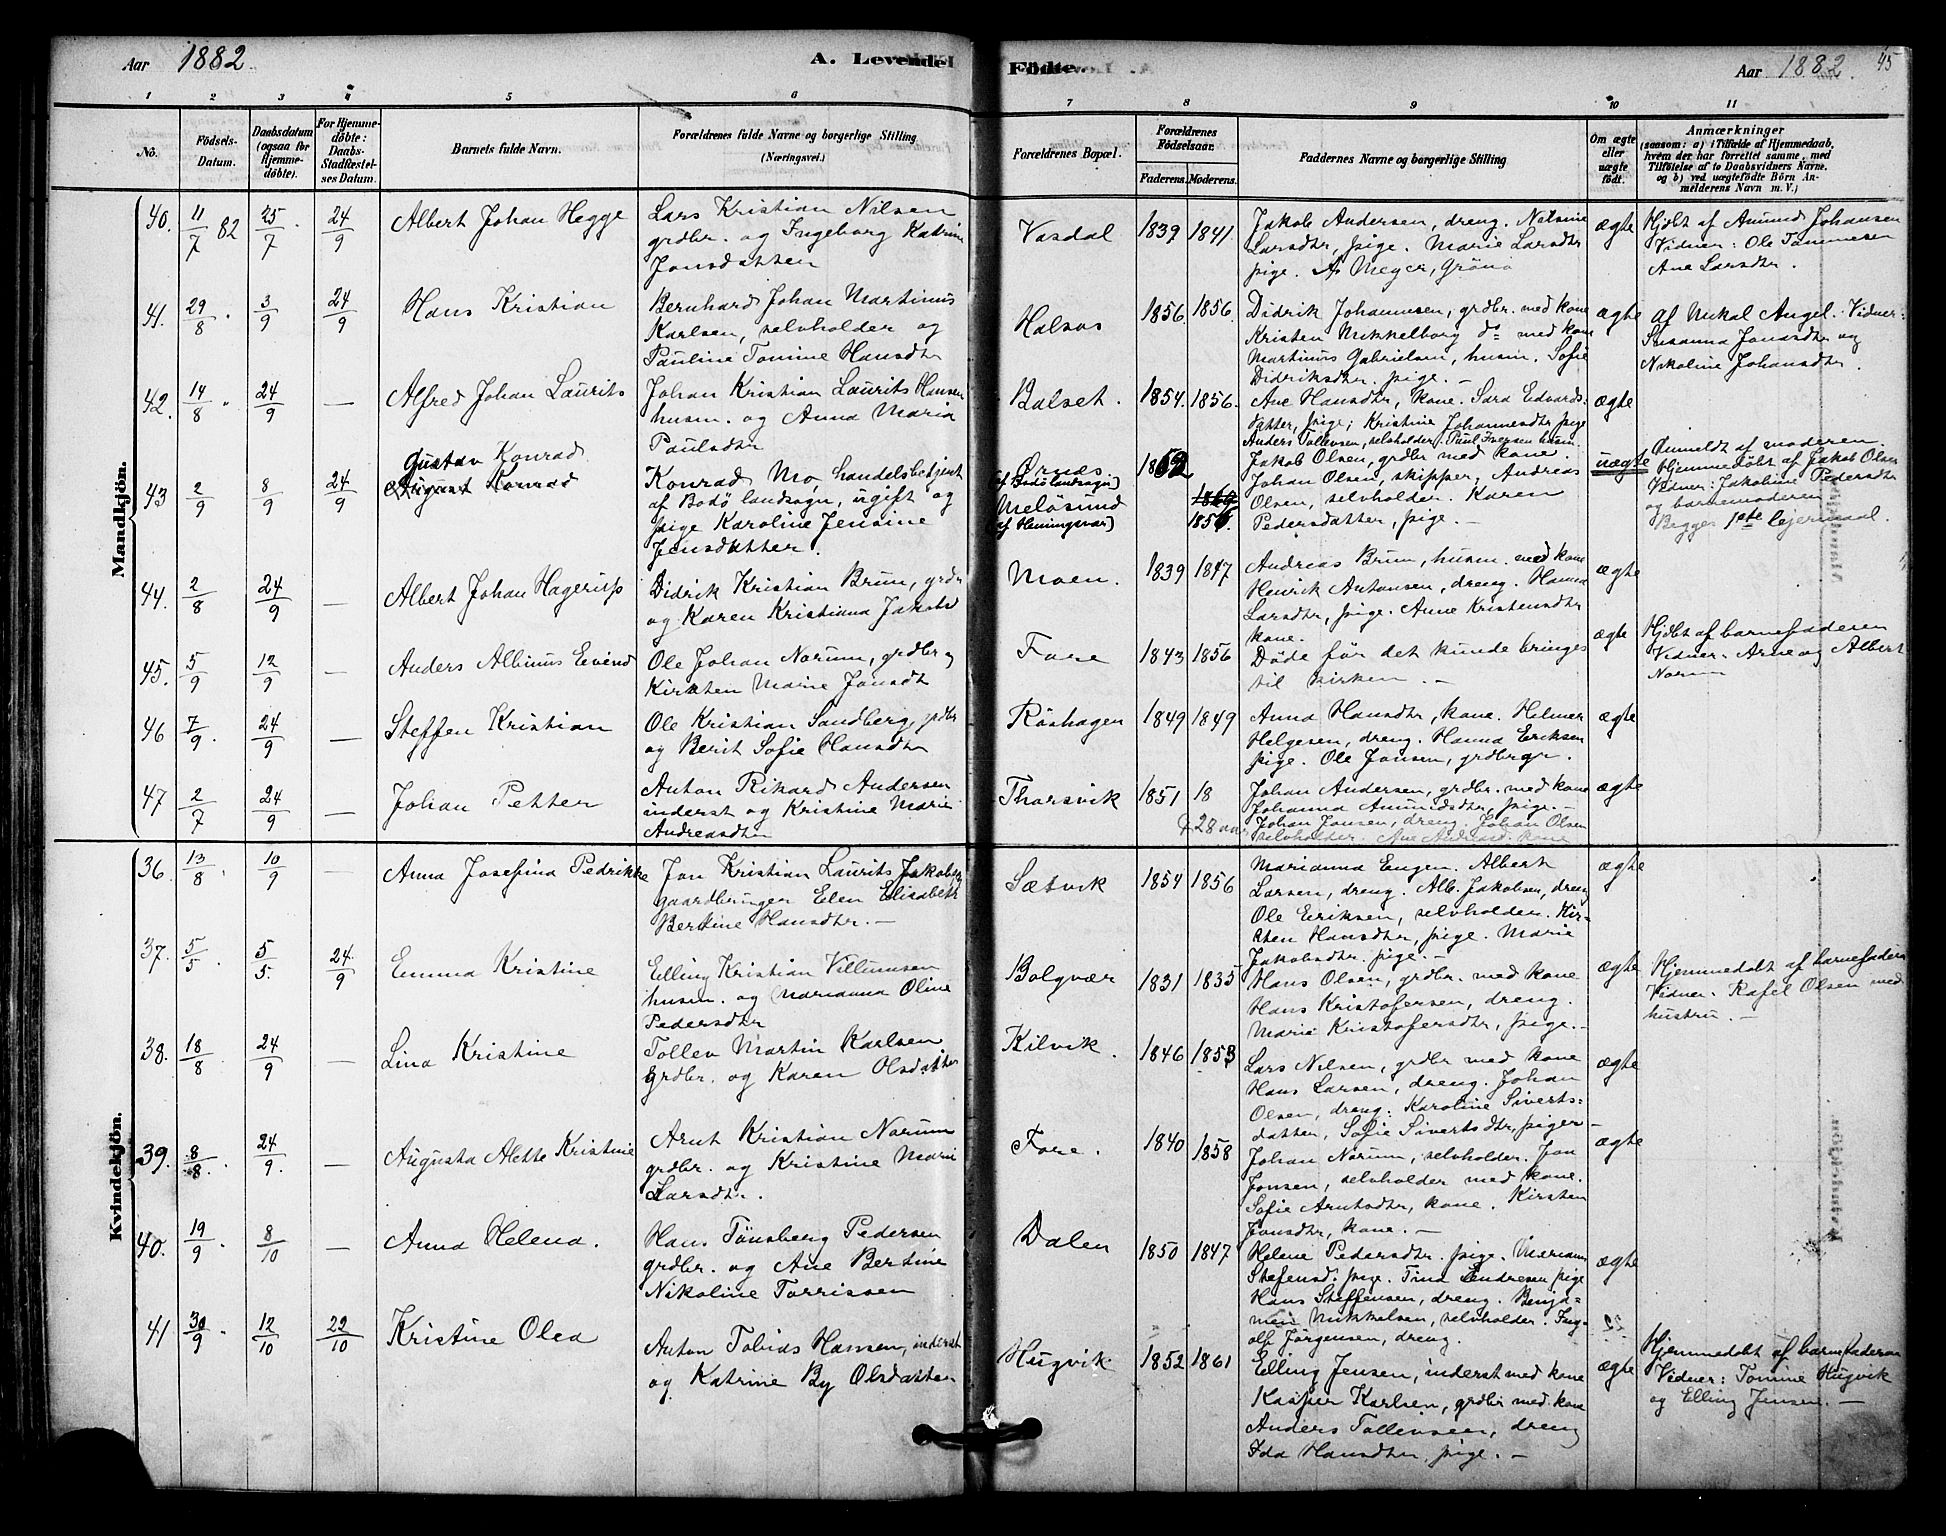 Aar 1882. A. Levendel Födte. Aar 1882. 45
1 2 3 4 5 6 7 8 9 10 11
No. Födsels-Datum. Daabsdatum (ogsaa for Hjemme-döbte). For Hjemme-döbte: Daabs-Stadfæstel-ses Datum. Barnets fulde Navn. Forældrenes fulde Navne og borgerlige Stilling (Næringsvei.) Forældrenes Bopæl. Forældrenes Födselsaar. Faderens. Moderens. Faddernes Navne og borgerlige Stilling Om ægte eller uægte födt. Anmærkninger (saasom: a) i Tilfælde af Hjemmedaab, hvem der har forrettet samme, med Tilföielse af to Daabsvidners Navne, og b) ved uægtefödte Börn An-melderens Navn m. V.)
Mandkjön.
40. 11/7 82 25/7 24/9 Albert Johan Hegge
Lars Kristian Nilsen
grdbr. og Ingeborg Katrine
Jonsdatter
Vasdal 1839 1841
Jakob Andersen, dreng. Nilsine
Larsdtr, pige. Marie Larsdtr
pige. A. Meyer, Grönø
ægte
Hjdbt af Amund Johansen
Vidner: Ole Tommesen
Ane Larsdtr.
41. 29/8 3/9 24/9 Hans Kristian
Bernhard Johan Martinus
Karlsen, selvholder og
Pauline Tomine Hansdtr
Halsos 1856. 1856.
Didrik Johannesen, grdbr. med kone
Kristen Mikkelborg do med kone
Martinus Gabrielsen, husm. Sofie
Didriksdtr. pige. —
ægte
af Mikal Angel. Vidner:
Susanna Jonasdtr og
Nikoline Johansdtr.
42. 14/8 24/9 — Alfred Johan Laurits
Johan Kristian Laurits Hansen
husm. og Anna Maria
Paulsdtr
Balset. 1854. 1856.
Ane Hansdtr, kone. Sara Edvards-
datter, pige; Kristine Johannesdtr pige
Anders Tollevsen, selvholder. Paul Iversen husm.
ægte
43 2/9 8/9 24/9 Gustav Konrad
August Konrad
Konrad Mo, handelsbetjent
af Bodö landsogn, ugift og
pige Karoline Jensine
Jensdatter.
Ørnes
(af Bodö landsogn)
Meløsund
(af Henningsvær)
1862 1860 1856
Jakob Olsen, grdbr med kone.
Johan Olsen, skipper, Andreas
Olsen, selvholder. Karen
Pedersdatter, pige. —
uægte
Anmeldt af moderen.
Hjemmedöbt af Jakob Olsen
Vidner: Jakobine Pedersdtr
og barnemoderen
Begges 1ste lejermaal.
44. 2/8 24/9 — Albert Johan Hagerups
Didrik Kristian Brun, grdbr
og Karen Kristiana Jakobsd
Moen. 1839 1847
Andreas Brun, husm. med kone
Henrik Antonsen, dreng. Hanna
Larsdtr, pige. Anne Kristensdtr
kone.
ægte
45. 5/9 12/9 Anders Albinus Eivind
Ole Johan Norum, grdbr og
Kirsten Marie Jonsdtr
Fore 1843 1856
Døde før det kunde bringes
til kirken. —
ægte
Hjdbt af barnefaderen
Vidner: Arne og Albert
Norum
46 7/9. 24/9 — Steffen Kristian
Ole Kristian Sandberg, grdbr
og Berit Sofie Hansdtr
Röshagen 1849 1849
Anna Hansdtr, kone. Helmer
Helgesen, dreng. Hanna Eriksen
pige. Ole Jonsen, grdbrgr.
ægte
47 2/7 24/9 — Johan Petter
Anton Rikard Andersen
inderst og Kristine Marie
Andreasdtr
Thorsvik 1851 18
28 aar
Johan Andersen, grdbr. med kone
Johanna Amundsdtr, pige. —
Johan Jonsen, dreng. Johan Olsen
selvholder. Ane Andreasd. kone
ægte
Kvindekjön.
36. 13/8 10/9 — Anna Josefina Pedrikke
Jon Kristian Laurits Jakobsen
gaardbruger Elen Elisabeth
Bertine Hansdtr. —
Sætvik 1854 1856
Marianna Engen. Albert
Larsen, dreng. Alb. Jakobsen, dreng
Ole Eriksen, selvholder. Kir-
sten Hansdtr, pige. Marie
Jakobsdtr. pige. —
ægte
37. 5/5 5/5 24/9 Emma Kristine
Elling Kristian Villumsen
husm. og Marianna Oline
Pedersdtr
Bolgvær 1831 1835
Hans Olsen, grdbr. med kone
Hans Kristofersen, dreng.
Marie Kristofersdtr, pige. —
ægte
Hjemmedöbt af barnefaderen
Vidner. Rafel Olsen med
hustru. —
38. 18/8 24/9 — Lina Kristine
Tollev Martin Karlsen
grdbr. og Karen Olsdatter
Kilvik. 1846 1853
Lars Nilsen, grdbr med kone
Hans Larsen, dreng. Johan
Olsen, dreng: Karoline Siverts-
datter, Sofie Sivertsdtr, piger —
ægte
39. 8/8 24/9. — Augusta Alette Kristine
Arnt Kristian Norum
grdbr. og Kristine Marie
Larsdtr.
Fore. 1840 1858
Johan Norum, selvholder. Jon
Jonsen, selvholder med kone.
Sofie Arntsdtr, kone. Kirsten
Jonsdtr, kone. —
ægte
40. 19/9 8/10 — Anna Helena.
Hans Tönsberg Pedersen
grdbr. og Ane Bertine
Nikoline Torrissen
Dalen 1850 1847
Helene Pedersdtr. pige. Mariann
Stefensd. pige. Tina Endresen pige
Hans Steffensen, dreng. Benja-
min Mikkelsen, selvholder. Ing-
olb Jörgensen, dreng.
ægte
41 30/9 12/10 29/10 Kristine Olea
Anton Tobias Hansen, inderst
og Katrine By Olsdatter
Hugvik 1852 1861
Elling Jensen, inderst med kone
Kasper Karlsen, grdbr med kone
Anders Tollevsen, dreng
Ida Hansdtr, pige. —
ægte
Hjemmedobt af barnefaderen
Vidner: Tomine Hugvik
og Elling Jensen. —